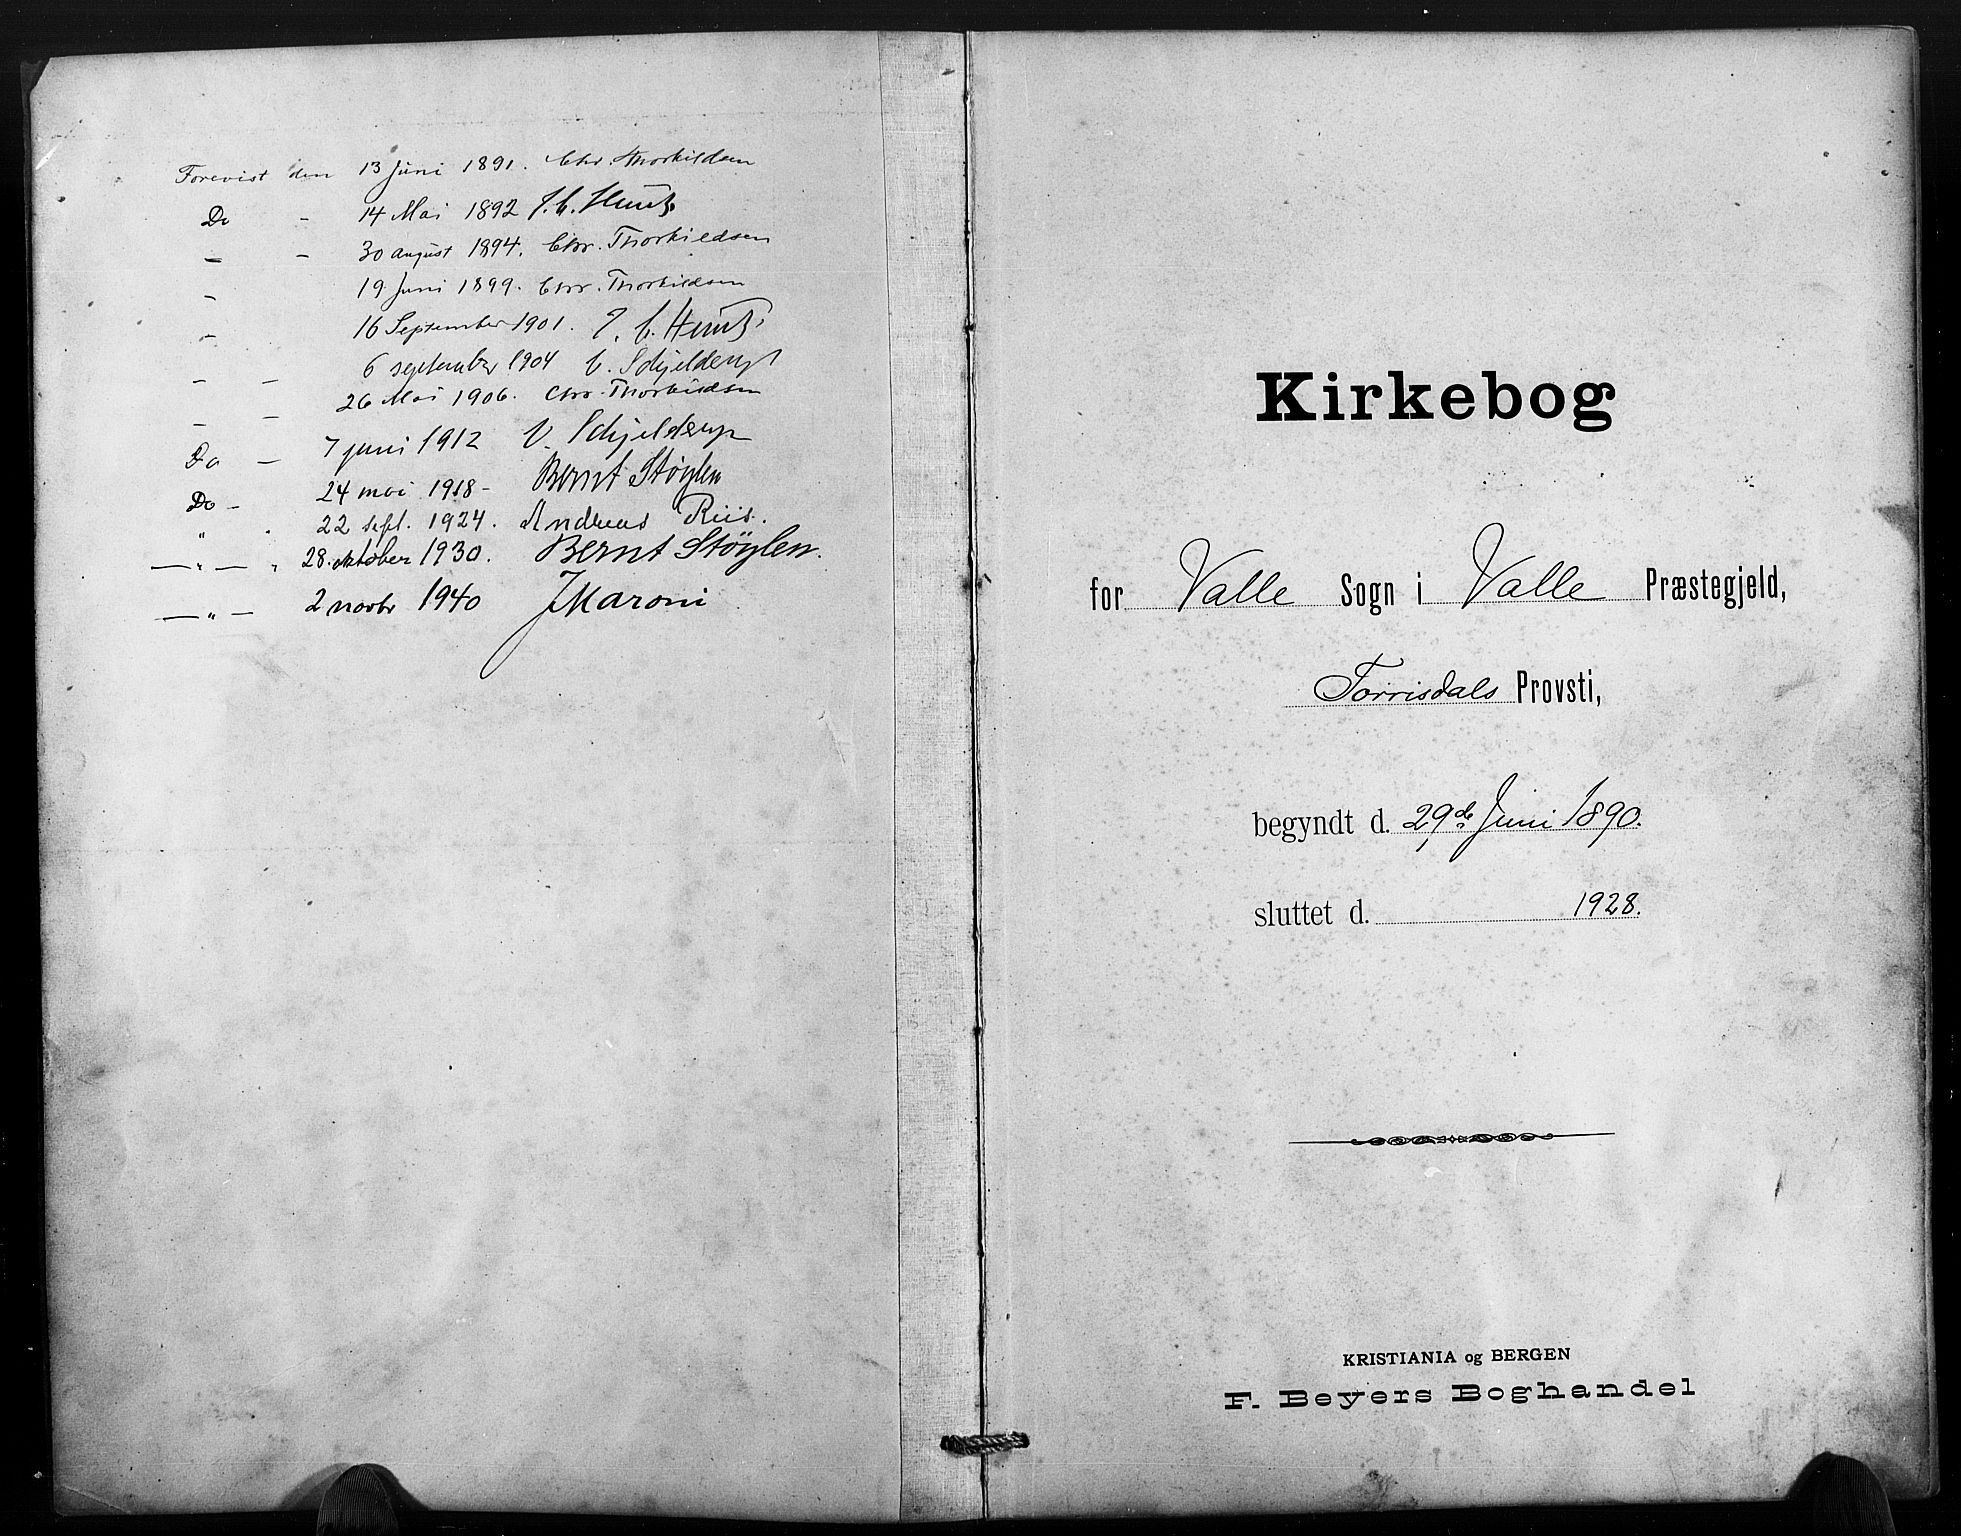 Forevist den 13 Juni 1891. Chr. Thorkildsen
Do - 14 Mai 1892 J. C. Heuch
- - 30 august 1894. Chr. Thorkildsen
- 19 Juni 1899. Chr. Thorkildsen
- 16 September 1901. J. C. Heuch
- - 6 september 1904 V. Schjelderup
- - 26 Mai 1906. Chr. Thorkildsen
Do - 7 juni 1912 V. Schjelderup
Do - 24 mai 1918 - Bernt Støylen
" . 22 sept. 1924. Andreas Riis.
— " — " 28. oktober 1930. Bernt Støylen.
— " — 2 novbr 1940 J Maroni
Kirkebog
for Valle Sogn i Valle Præstegjeld,
Torrisdals Provsti,
begyndt d. 29de Juni 1890.
sluttet d. 1928.
KRISTIANIA og BERGEN
F. Beyers Boghandel